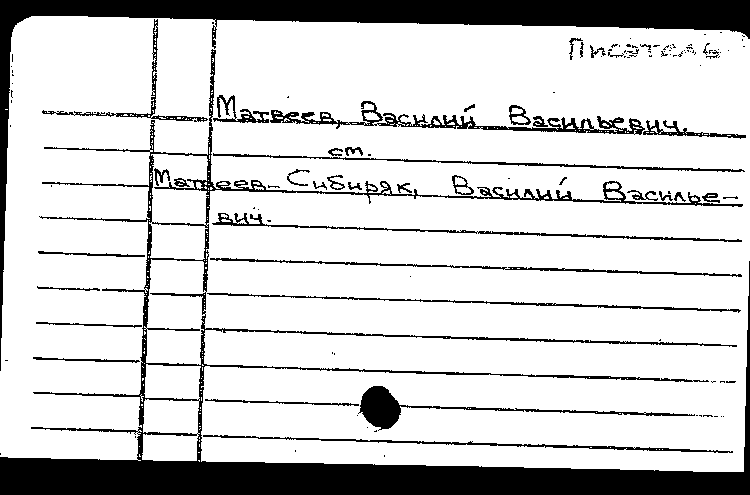 Писатель
Матвеев, Василий Васильевич.
см.
Матвеев-Сибиряк, Василий Василье-
вич.